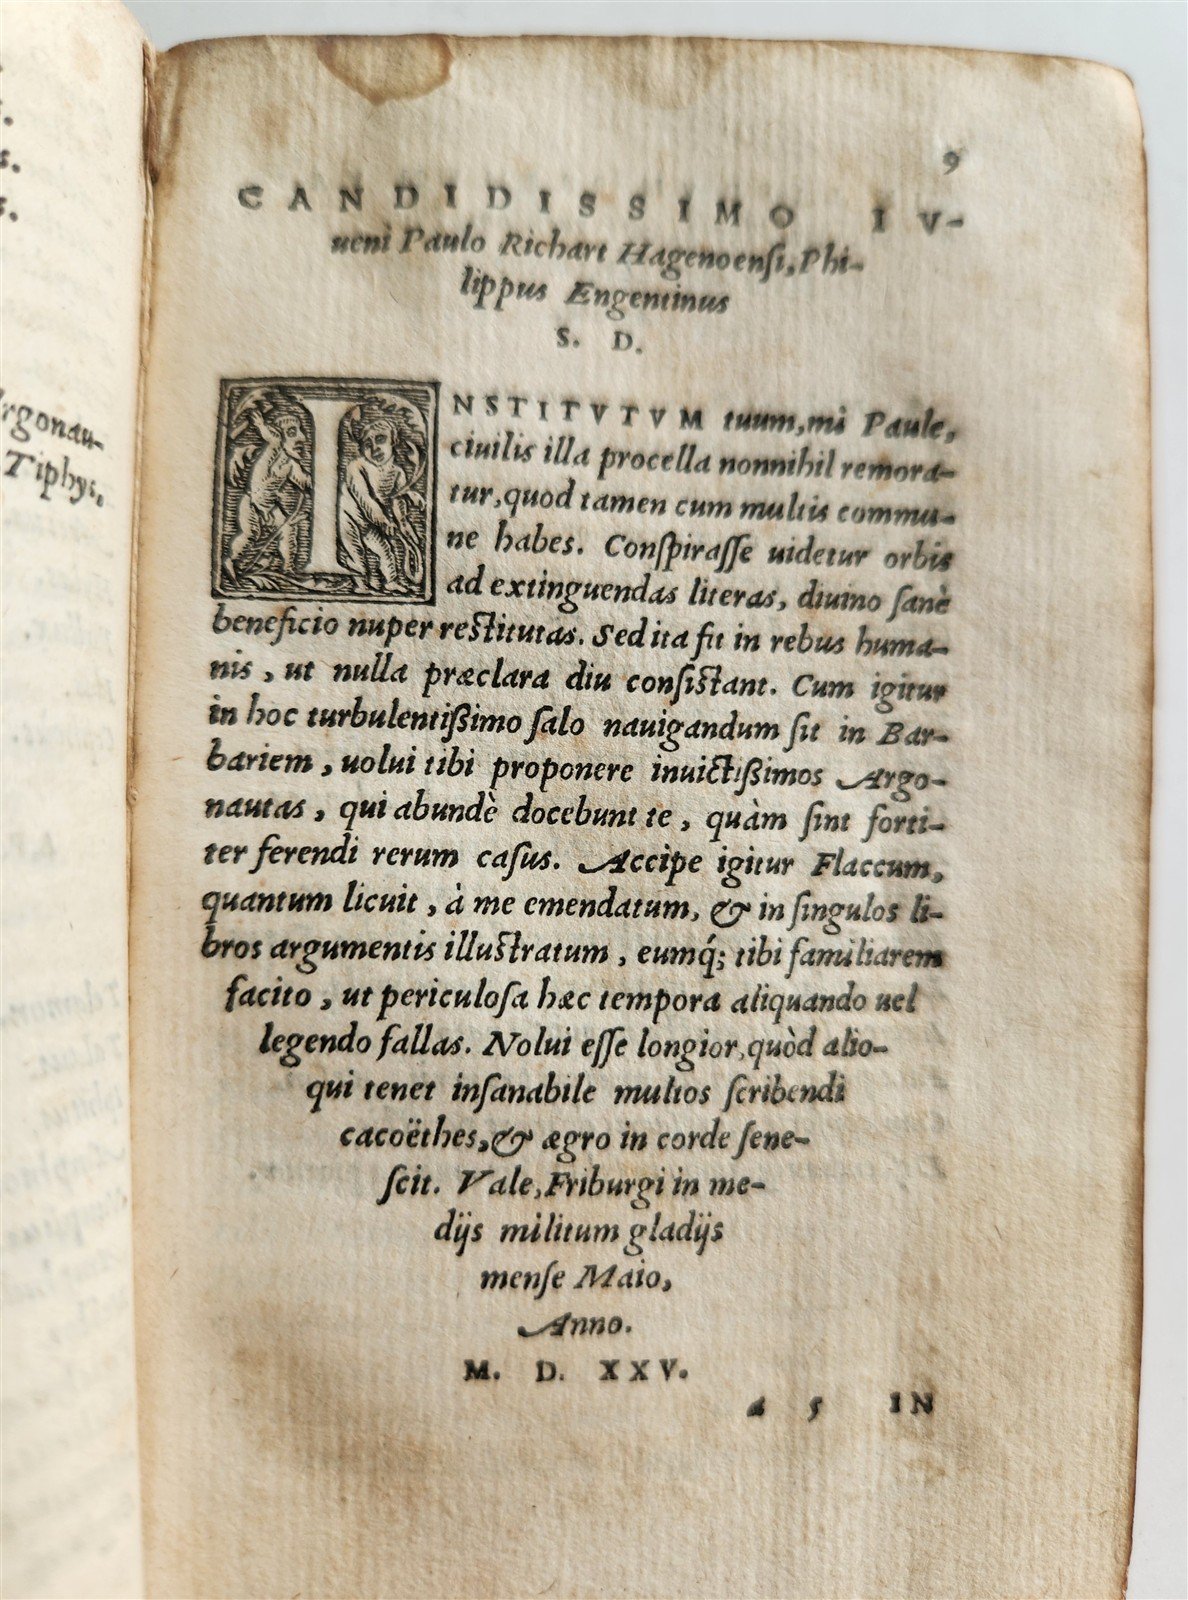 rgonau-
Tiphys.
9
CANDIDISSIMO IV-
ueni Paulo Richart Hagenoensi, Phi-
lippus Engentinus
S. D.
INSTITVTVM tuum, mi Paule,
ciuilis illa procella nonnihil remora-
tur, quod tamen cum multis commu-
ne habes. Conſpiraſſe uidetur orbis
ad extinguendas literas, diuino ſanè
beneficio nuper reſtitutas. Sed ita fit in rebus huma-
nis, ut nulla præclara diu conſiſtant. Cum igitur
in hoc turbulentißimo ſalo nauigandum ſit in Bar-
bariem, uolui tibi proponere inuictißimos Argo-
nautas, qui abundè docebunt te, quàm ſint forti-
ter ferendi rerum caſus. Accipe igitur Flaccum,
quantum licuit, à me emendatum, & in ſingulos li-
bros argumentis illuſtratum, eumq́; tibi familiarem
facito, ut periculoſa hæc tempora aliquando uel
legendo fallas. Nolui eſſe longior, quòd alio-
qui tenet inſanabile multos ſcribendi
cacoëthes, & ægro in corde ſene-
ſcit. Vale, Friburgi in me-
dijs militum gladijs
menſe Maio,
Anno.
M. D. XXV.
a 5 IN